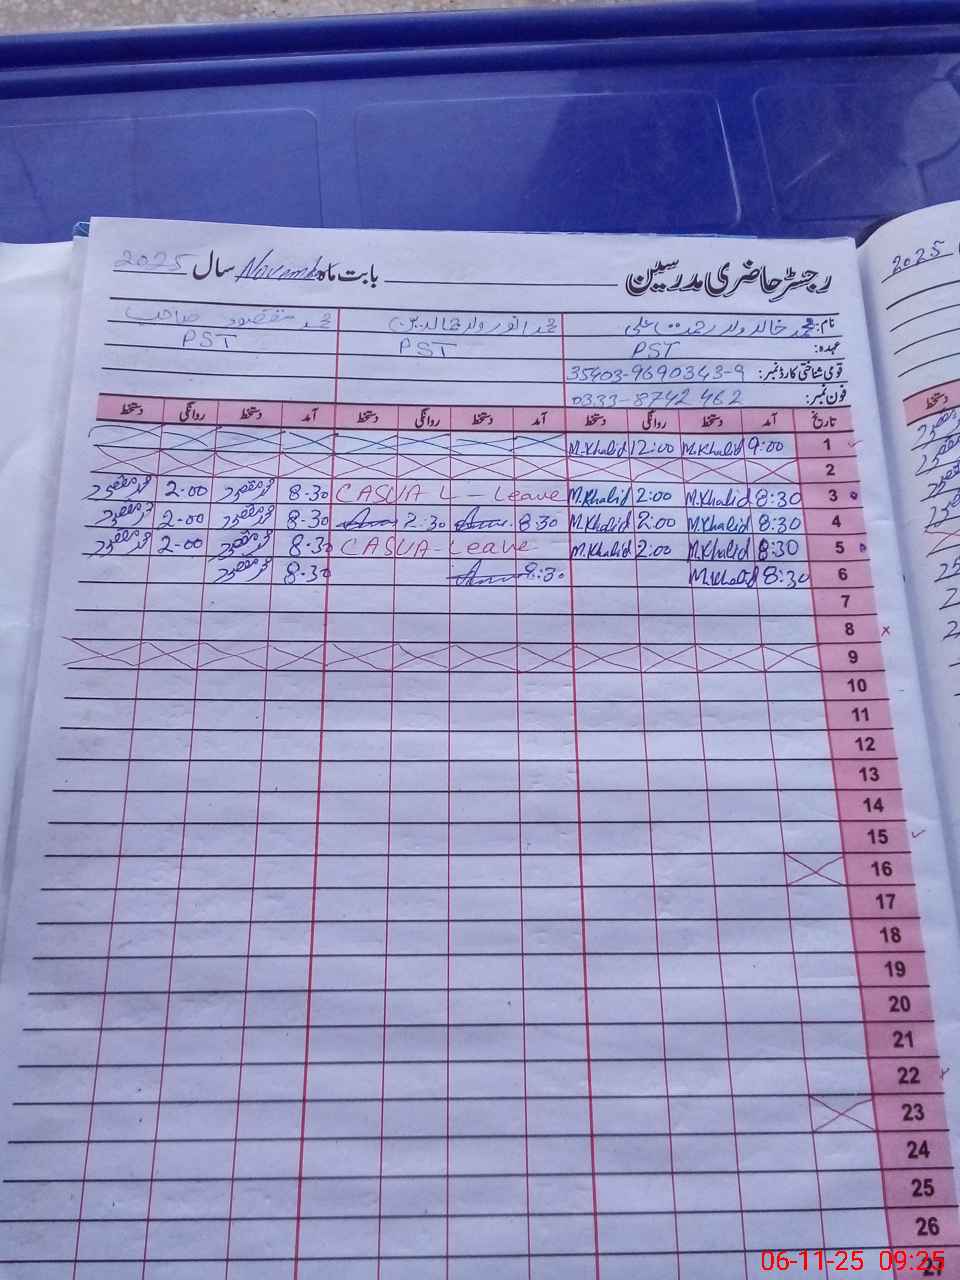 رجسٹر حاضری مدرسین بابت ماہ November سال 2025
نام: محمد خالد ولد رحمت علی محمد انور ولد محمد مقصود صاحب
عہدہ: PST PST PST
قومی شناختی کارڈ نمبر: 35403-9690343-9
فون نمبر: 0333-8742462
تاریخ آمد دستخط روانگی دستخط آمد دستخط روانگی دستخط آمد دستخط روانگی دستخط
1 9:00 M.Khalid 12:00 M.Khalid
2
3 8:30 M.Khalid 2:00 M.Khalid CASUAL - Leave 8-30 2-00
4 8:30 M.Khalid 2:00 M.Khalid 8:30 2:30 8-30 2-00
5 8:30 M.Khalid 2:00 M.Khalid CASUA- Leave 8-30 2-00
6 8:30 M.Khalid 8:30 8-30
7
8
9
10
11
12
13
14
15
16
17
18
19
20
21
22
23
24
25
26
27
2025
دستخط
06-11-25 09:25